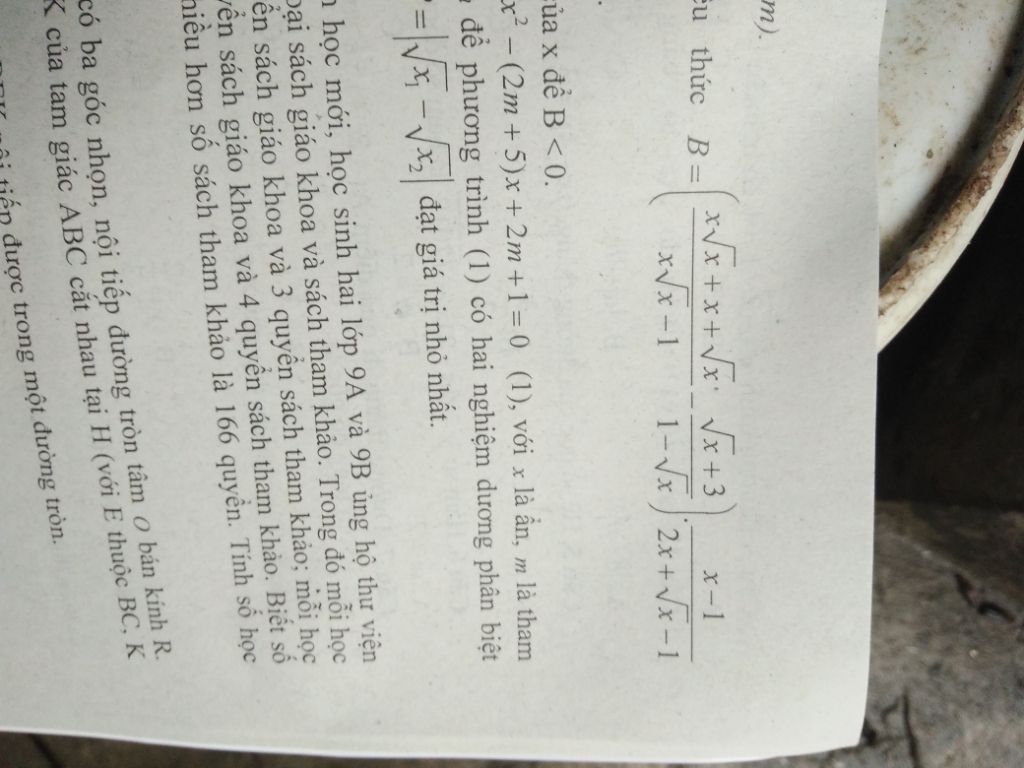 m).
thức B = \left( \frac{x\sqrt{x} + x + \sqrt{x}}{x\sqrt{x} - 1} - \frac{\sqrt{x} + 3}{1 - \sqrt{x}} \right) . \frac{x - 1}{2x + \sqrt{x} - 1}
của x để B < 0.
x² − (2m + 5)x + 2m + 1 = 0 (1), với x là ẩn, m là tham
để phương trình (1) có hai nghiệm dương phân biệt
= |√x₁ − √x₂| đạt giá trị nhỏ nhất.
học mới, học sinh hai lớp 9A và 9B ủng hộ thư viện
sách giáo khoa và sách tham khảo. Trong đó mỗi học
sách giáo khoa và 3 quyển sách tham khảo; mỗi học
sách giáo khoa và 4 quyển sách tham khảo. Biết số
hơn số sách tham khảo là 166 quyển. Tính số học
có ba góc nhọn, nội tiếp đường tròn tâm O bán kính R.
K của tam giác ABC cắt nhau tại H (với E thuộc BC, K
tiếp được trong một đường tròn.